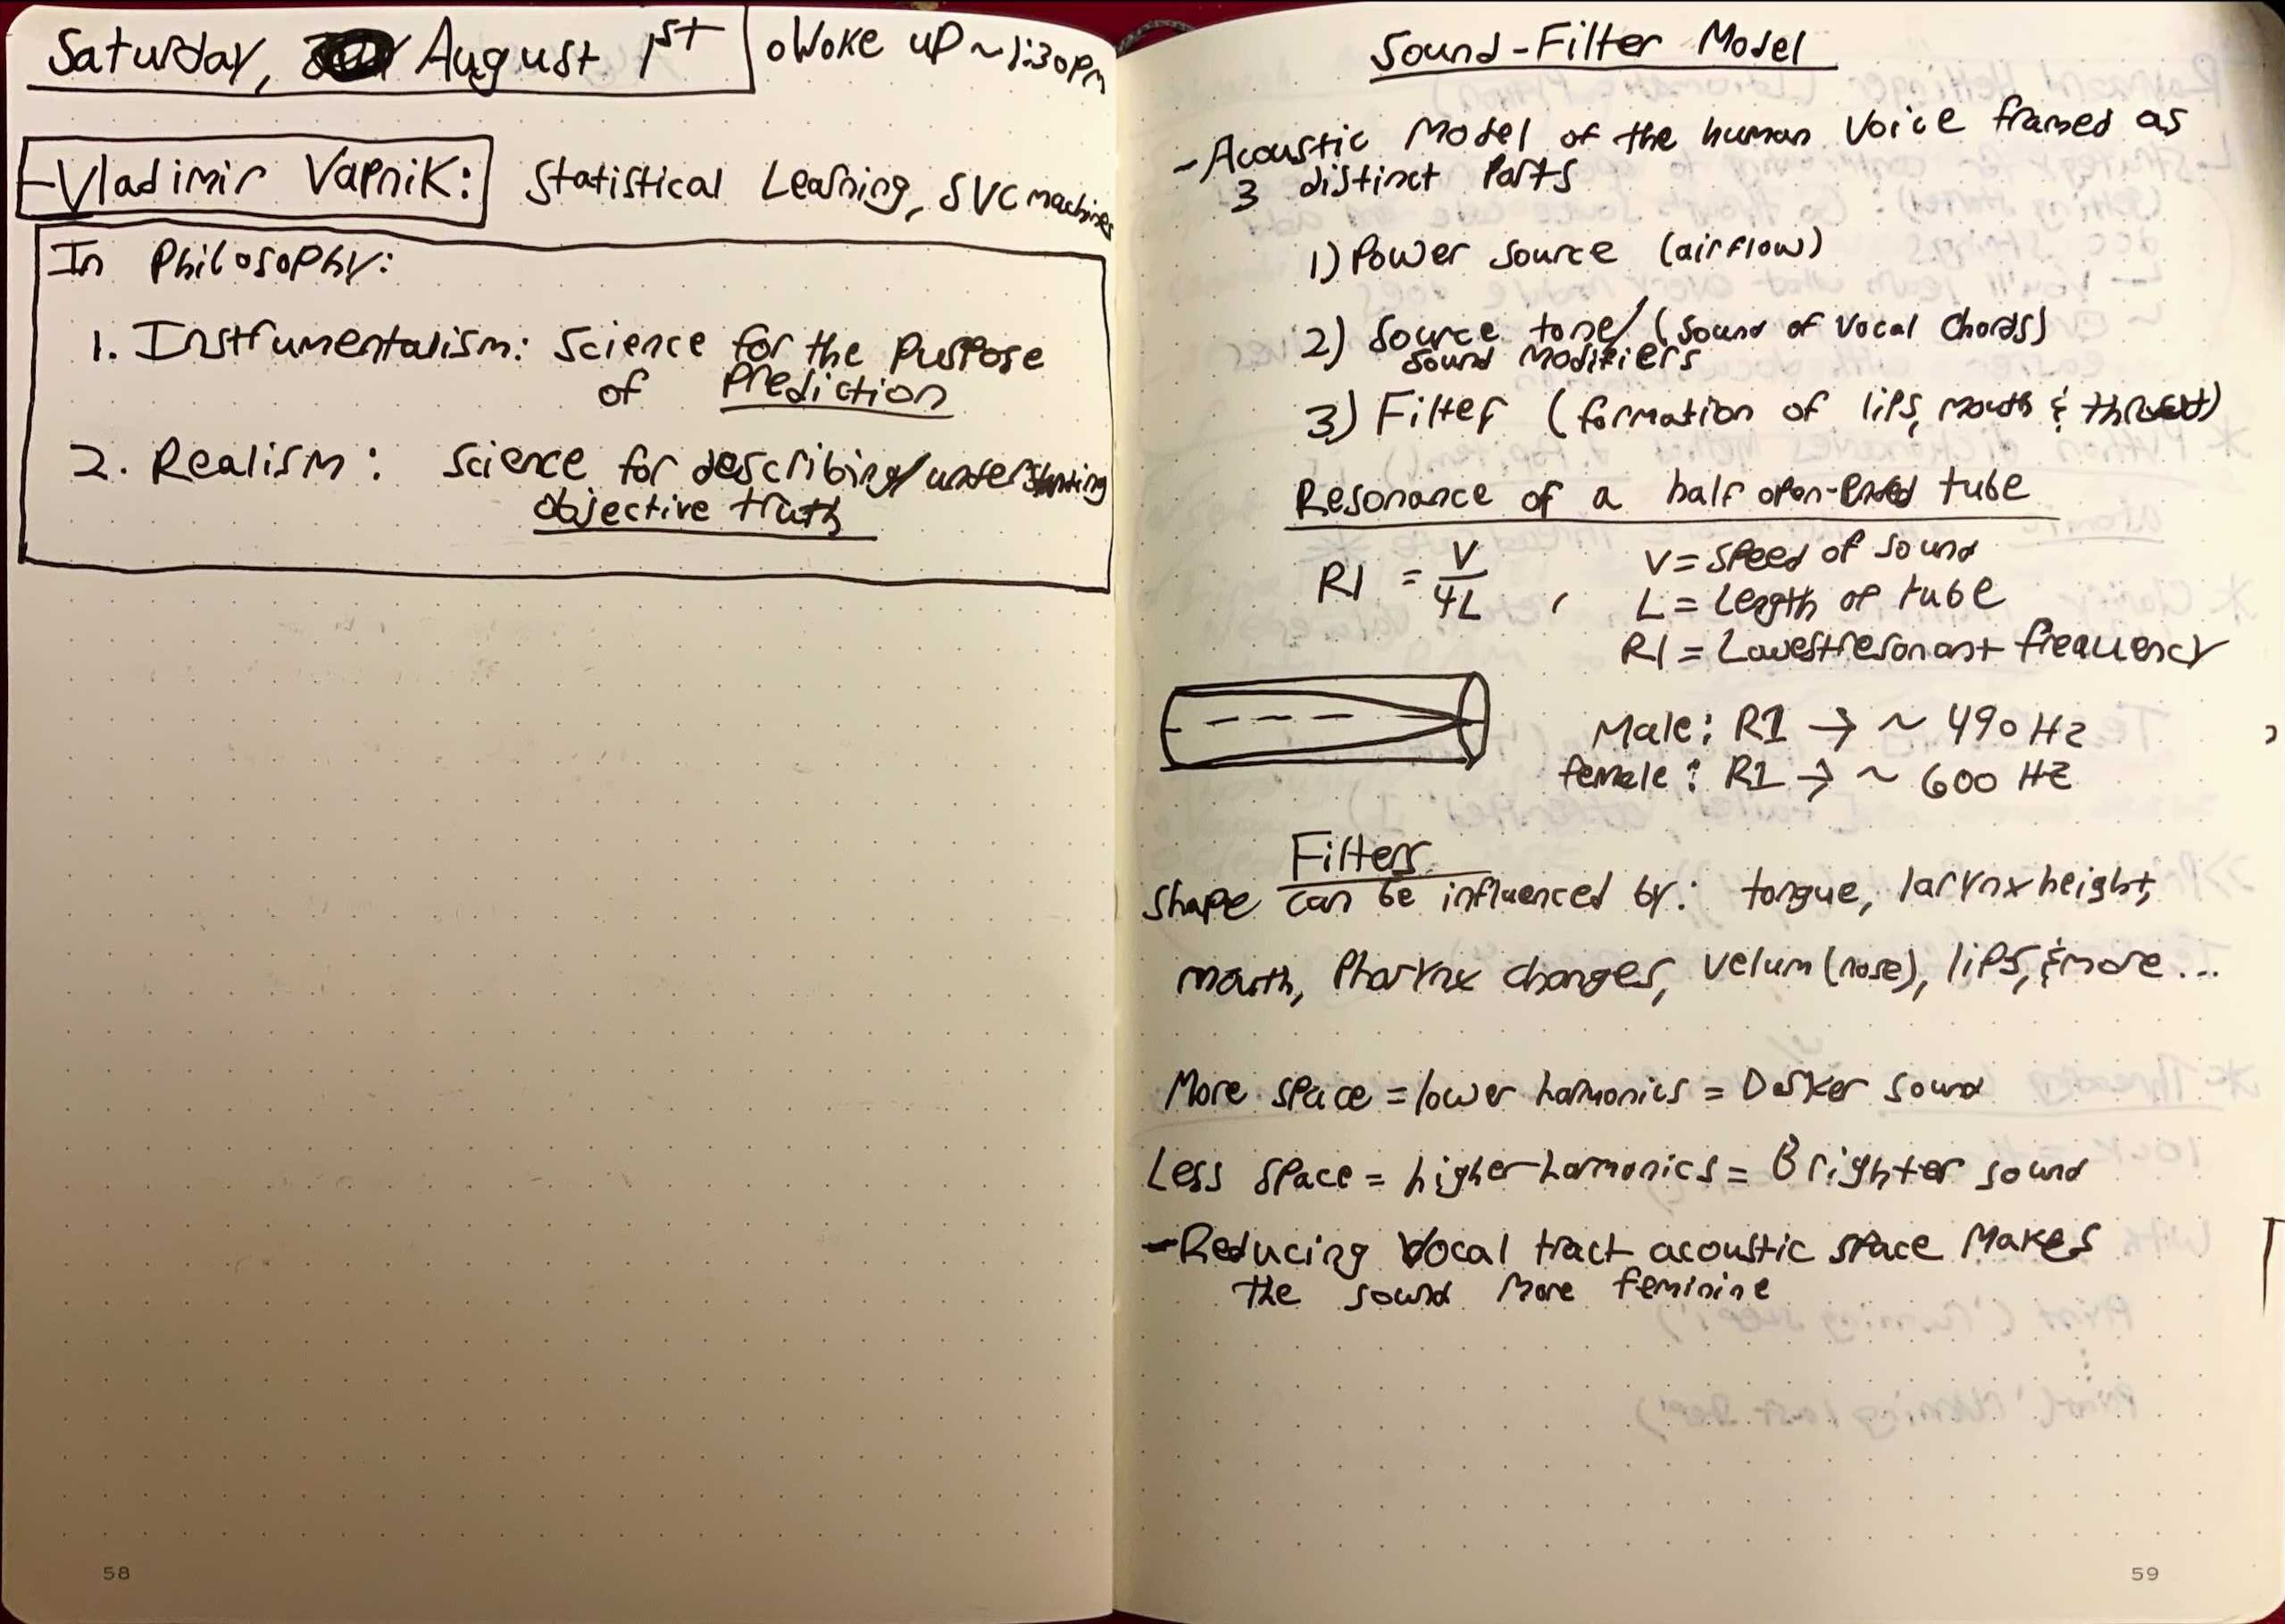 Saturday, August 1st
o Woke up ~1:30pm
-Vladimir Vapnik: Statistical Learning, SVC machines
In Philosophy:
1. Instrumentalism: Science for the purpose
of Prediction
2. Realism: Science for describing/understanding
objective truth
58
Sound-Filter Model
-Acoustic Model of the human Voice framed as
3 distinct parts
1) Power source (airflow)
2) Source tone/ (sound of vocal chords)
sound modifiers
3) Filter (formation of lips, mouth & throat)
Resonance of a half open-ended tube
R1 = V/4L , V = speed of sound
L = Length of tube
R1 = Lowest resonant frequency
Male: R1 → ~ 490 Hz
female: R1 → ~ 600 Hz
Filters
shape can be influenced by: tongue, larynx height,
mouth, Pharynx changes, velum (nose), lips, & more ...
More space = lower harmonics = Darker sound
Less space = higher harmonics = Brighter sound
-Reducing Vocal tract acoustic space makes
the sound more feminine
59